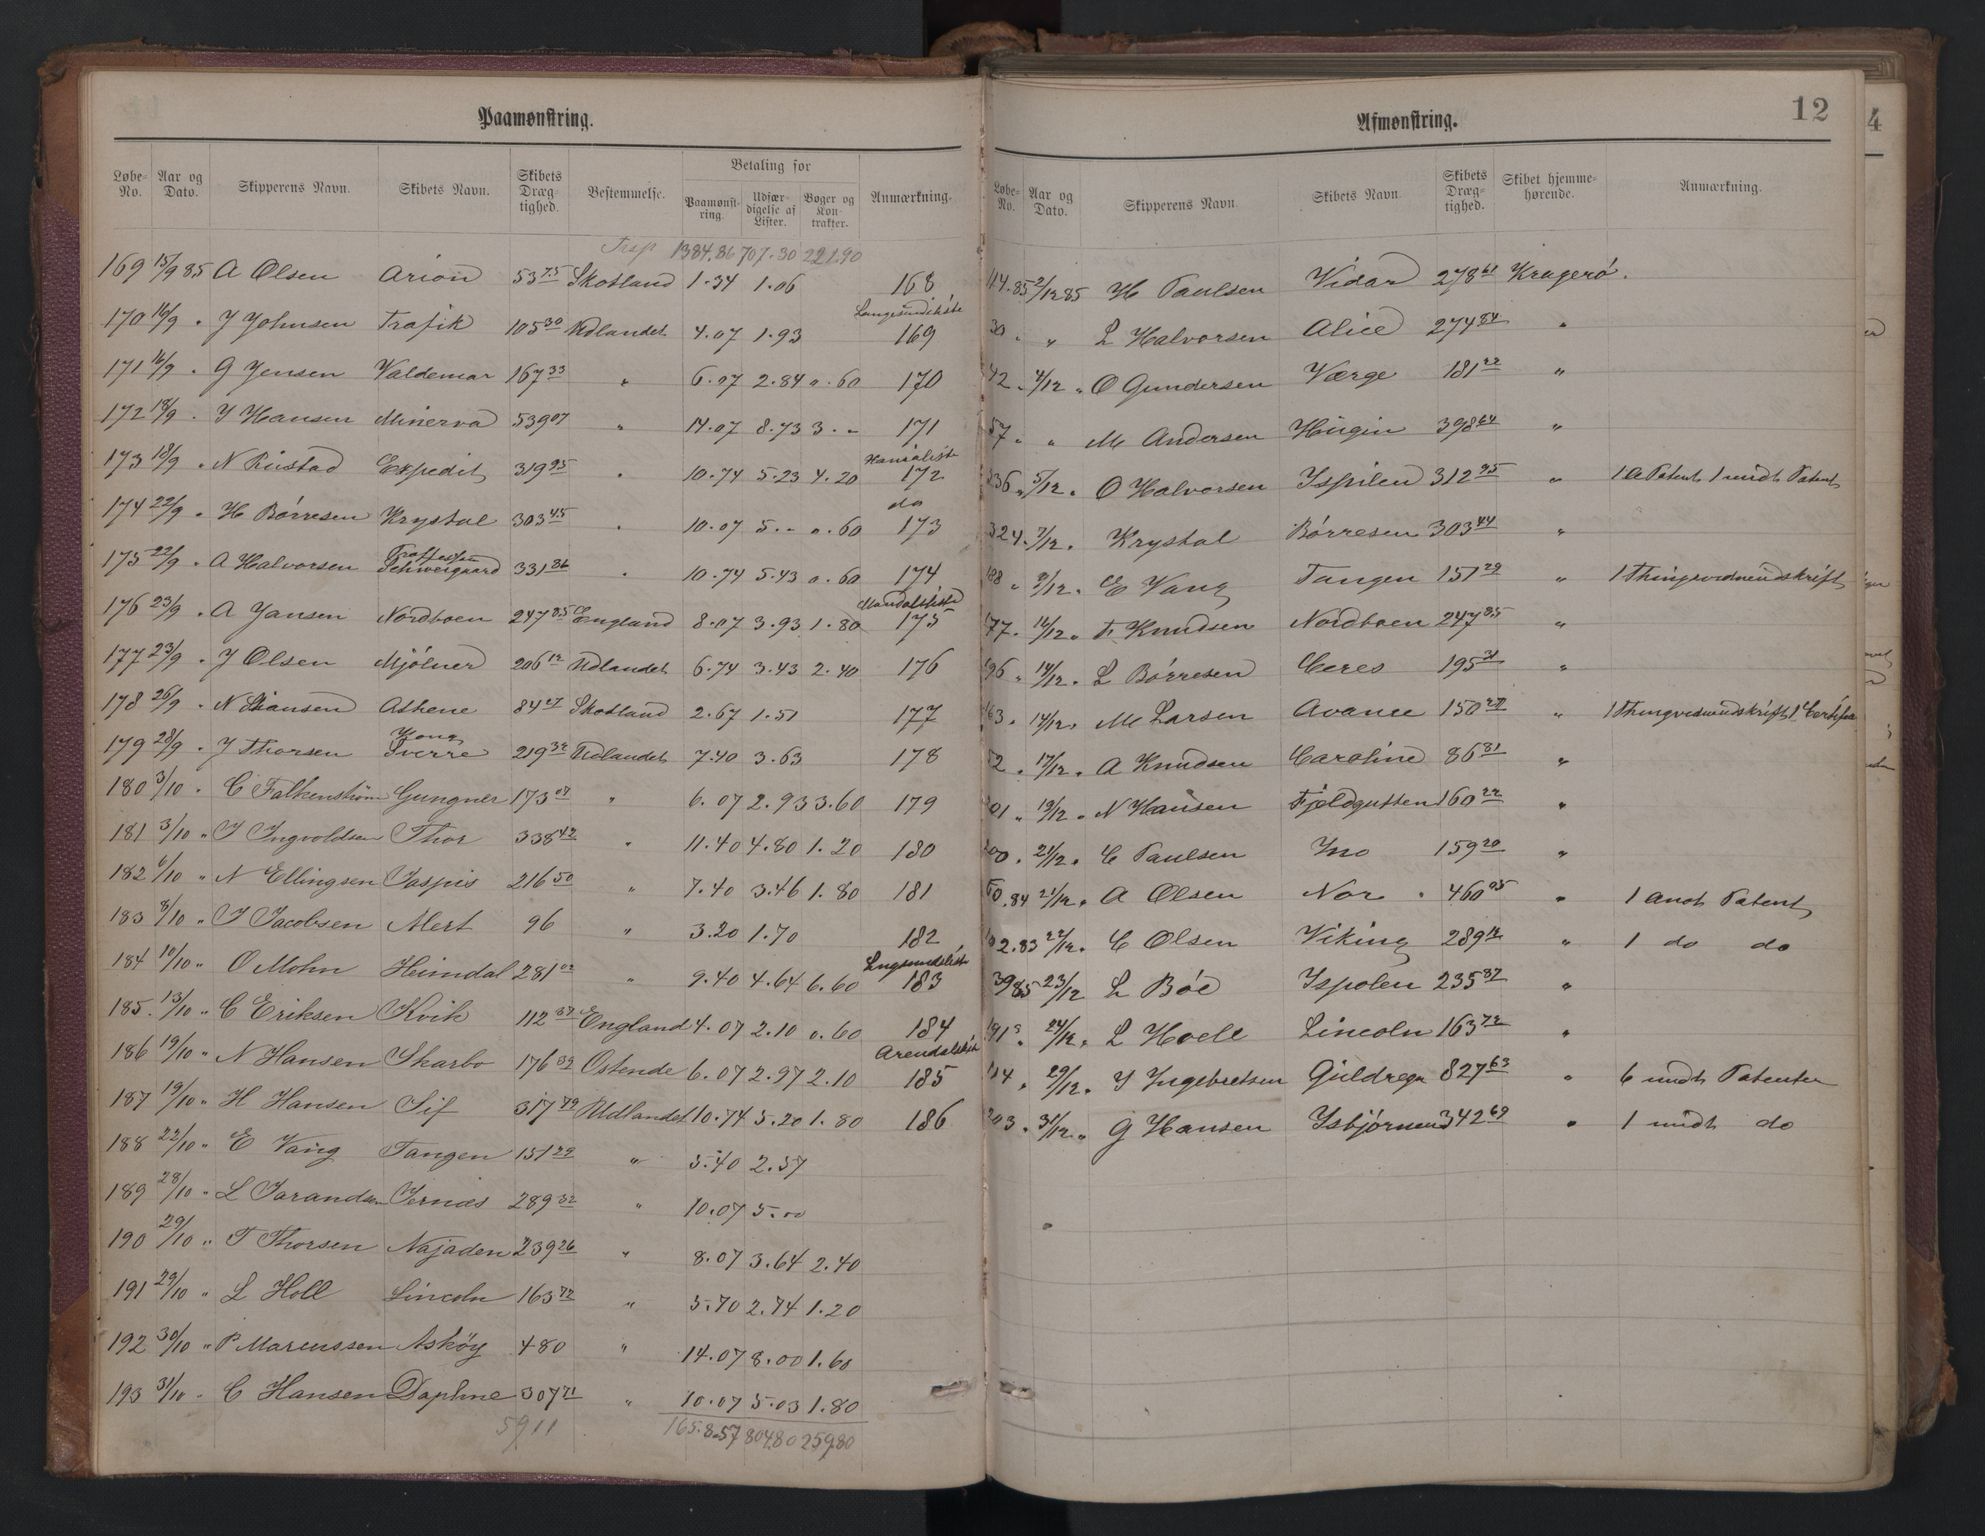 Paamønstring.
Løbe-No. Aar og Dato. Skipperens Navn. Skibets Navn. Skibets Dræg-tighed. Bestemmelse. Betaling for Paamønst-ring. Udfær-digelse af Lister. Bøger og Kon-trakter. Anmærkning.
Trsp 1384.86 707.30 221.90
169 15/9 85 A Olsen Arion 53 75 Skotland 1.34 1.06 168
170 16/9 " J Johnsen Trafik 105 30 Udlandet 4.07 1.93 Langesundsliste 169
171 16/9 " G Jensen Valdemar 167 33 " 6.07 2.84 0.60 170
172 18/9 " J Hansen Minerva 539 07 " 14.07 8.73 3.- 171
173 18/9 " N Rustad Expedit 319 95 " 10.74 5.23 4.20 172
174 22/9 " H Børresen Krystal 303 45 " 10.07 5.- 0.60 do 173
175 22/9 " A Halvorsen Schweigaard 331 86 " 10.74 5.43 0.60 174
176 23/9 " A Jansen Nordboen 247 85 England 8.07 3.93 1.80 Mandalsliste 175
177 23/9 " J Olsen Mjølner 206 12 Udlandet 6.74 3.43 2.40 176
178 26/9 " N Hansen Athene 84 27 Skotland 2.67 1.51 177
179 28/9 " J Thorsen Kong Sverre 219 32 Udlandet 7.40 3.63 178
180 3/10 " C Falkenstrøm Gungner 173 07 " 6.07 2.93 3.60 179
181 3/10 " J Ingvoldsen Thor 338 42 " 11.40 4.80 1.20 180
182 6/10 " N Ellingsen Jaspis 216 50 " 7.40 3.46 1.80 181
183 8/10 " J Jacobsen Alert 96 " 3.20 1.70 182
184 10/10 " O Mohn Heimdal 281 02 " 9.40 4.64 6.60 Lngsundsliste 183
185 13/10 " C Eriksen Kvik 112 37 England 4.07 2.10 0.60 184
186 19/10 " N Hansen Skarbo 176 39 Ostende 6.07 2.97 2.10 Arendalslist 185
187 19/10 " H Hansen Sif 317 79 Udlandet 10.74 5.20 1.80 186
188 22/10 " E Vang Tangen 151 29 " 5.40 2.57
189 28/10 " L Tarandsen Ternæs 289 32 " 10.07 5.00
190 29/10 " T Thorsen Najaden 239 26 " 8.07 3.64 2.40
191 29/10 " L Holl Lincoln 163 72 " 5.70 2.74 1.20
192 30/10 " P Marcussen Askøy 480 " 14.07 8.00 1.60
193 31/10 " C Hansen Daphne 307 71 " 10.07 5.03 1.80
5911 165.8.57 804.80 259.80
Afmønstring.
12
Løbe-No. Aar og Dato. Skipperens Navn. Skibets Navn. Skibets Dræg-tighed. Skibet hjemme-hørende. Anmærkning.
114.85 2/12 85 H Paulsen Vidar 278 61 Kragerø.
30 " " L Halvorsen Alice 274 84 "
42 " 4/12 " O Gundersen Værge 181 22 "
57 " " M Andersen Hugin 398 64 "
336 " 5/12 " O Halvorsen Ispilen 312 95 " 1 A Patent 1 undt Patent
324. 7/12 " Krystal Børresen 303 44 "
188 " 9/12 " E Vang Tangen 151 29 " 1 Thingsvidneudskrift
177. 12/12 " F Knudsen Nordboen 247 85 "
196 " 14/12 " L Børresen Ceres 195 31 "
163. 14/12 " M Larsen Avance 150 27 " 1 Thingvidneudskrift 1 Certifca
52 " 17/12 " A Knudsen Caroline 86 81 "
201 " 19/12 " N Hansen Fjeldgutten 160 22 "
200. 21/12 " C Paulsen Ino 159 20 "
50.84 21/12 " A Olsen Nor 460 05 " 1 andt Patent
102.83 22/12 " C Olsen Viking 289 12 " 1 do do
39 85 23/12 L Bøe Ispolen 235 87 "
191 " 24/12 " L Hoell Lincoln 163 72 "
114 " 29/12 " J Ingebretsen Guldregn 827 63 " 6 undt Patenter
203. 31/12 " G Hansen Isbjørnen 342 69 " 1 undt do
4